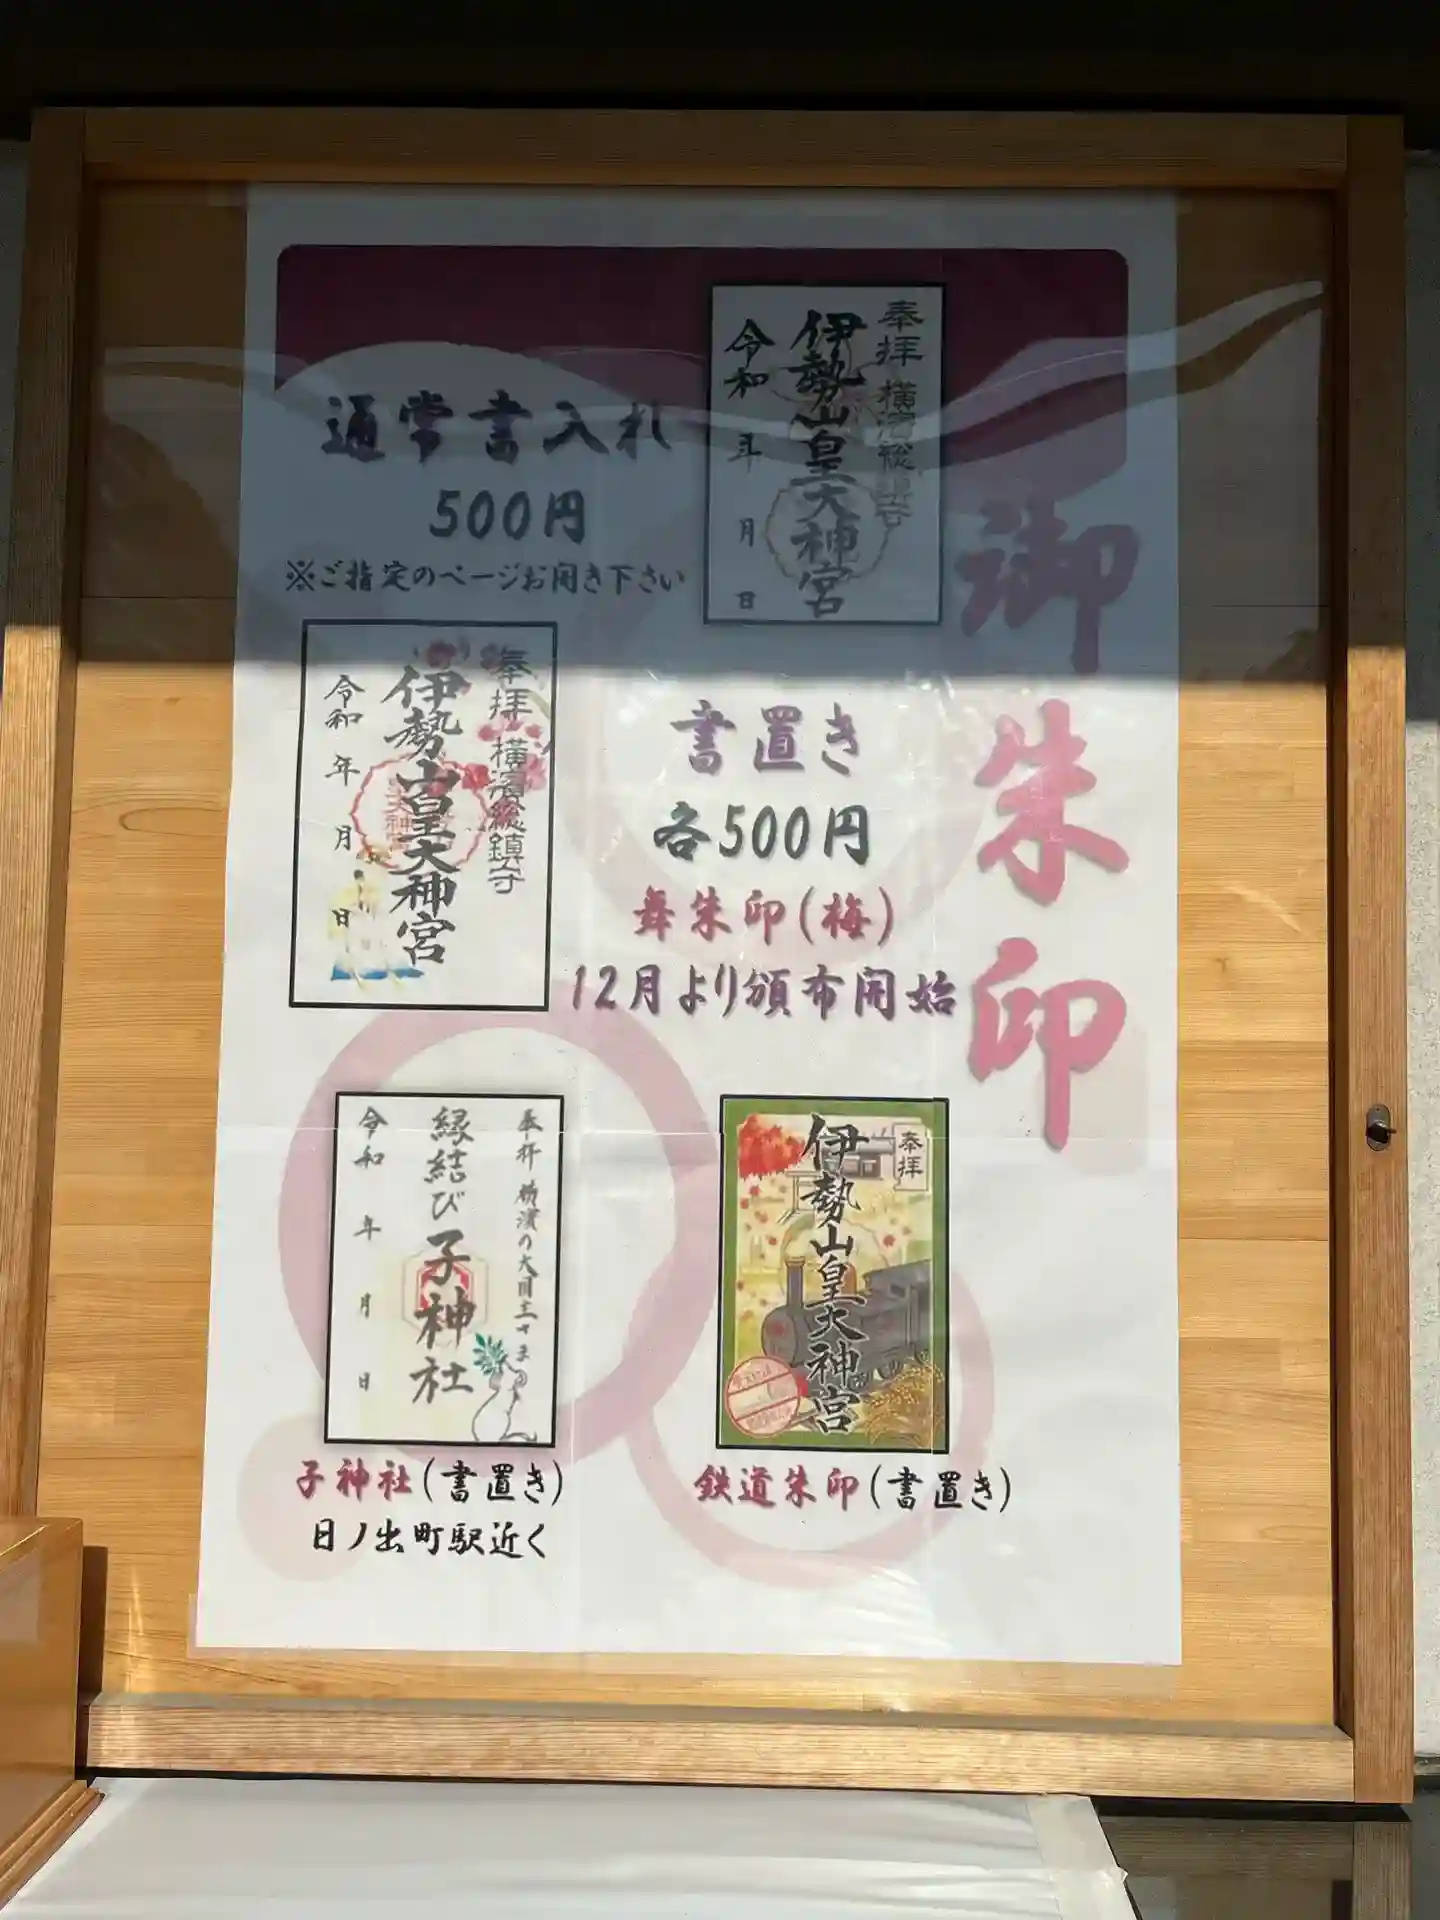 御朱印
奉拝 横濱総鎮守
伊勢山皇大神宮
令和 年 月 日
通常書入れ
500円
※ご指定のページお開き下さい
奉拝 横濱総鎮守
伊勢山皇大神宮
令和 年 月 日
書置き
各500円
舞朱印(梅)
12月より頒布開始
奉拝 横濱の大国主さま
縁結び 子神社
令和 年 月 日
子神社(書置き)
日ノ出町駅近く
奉拝
伊勢山皇大神宮
鉄道朱印(書置き)